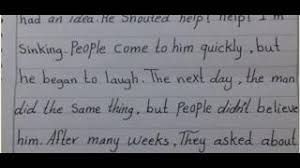 had an idea. He shouted help! help! I'm
Sinking. People come to him quickly, but
he began to laugh. The next day, the man
did the same thing, but people didn't believe
him. After many weeks, They asked about